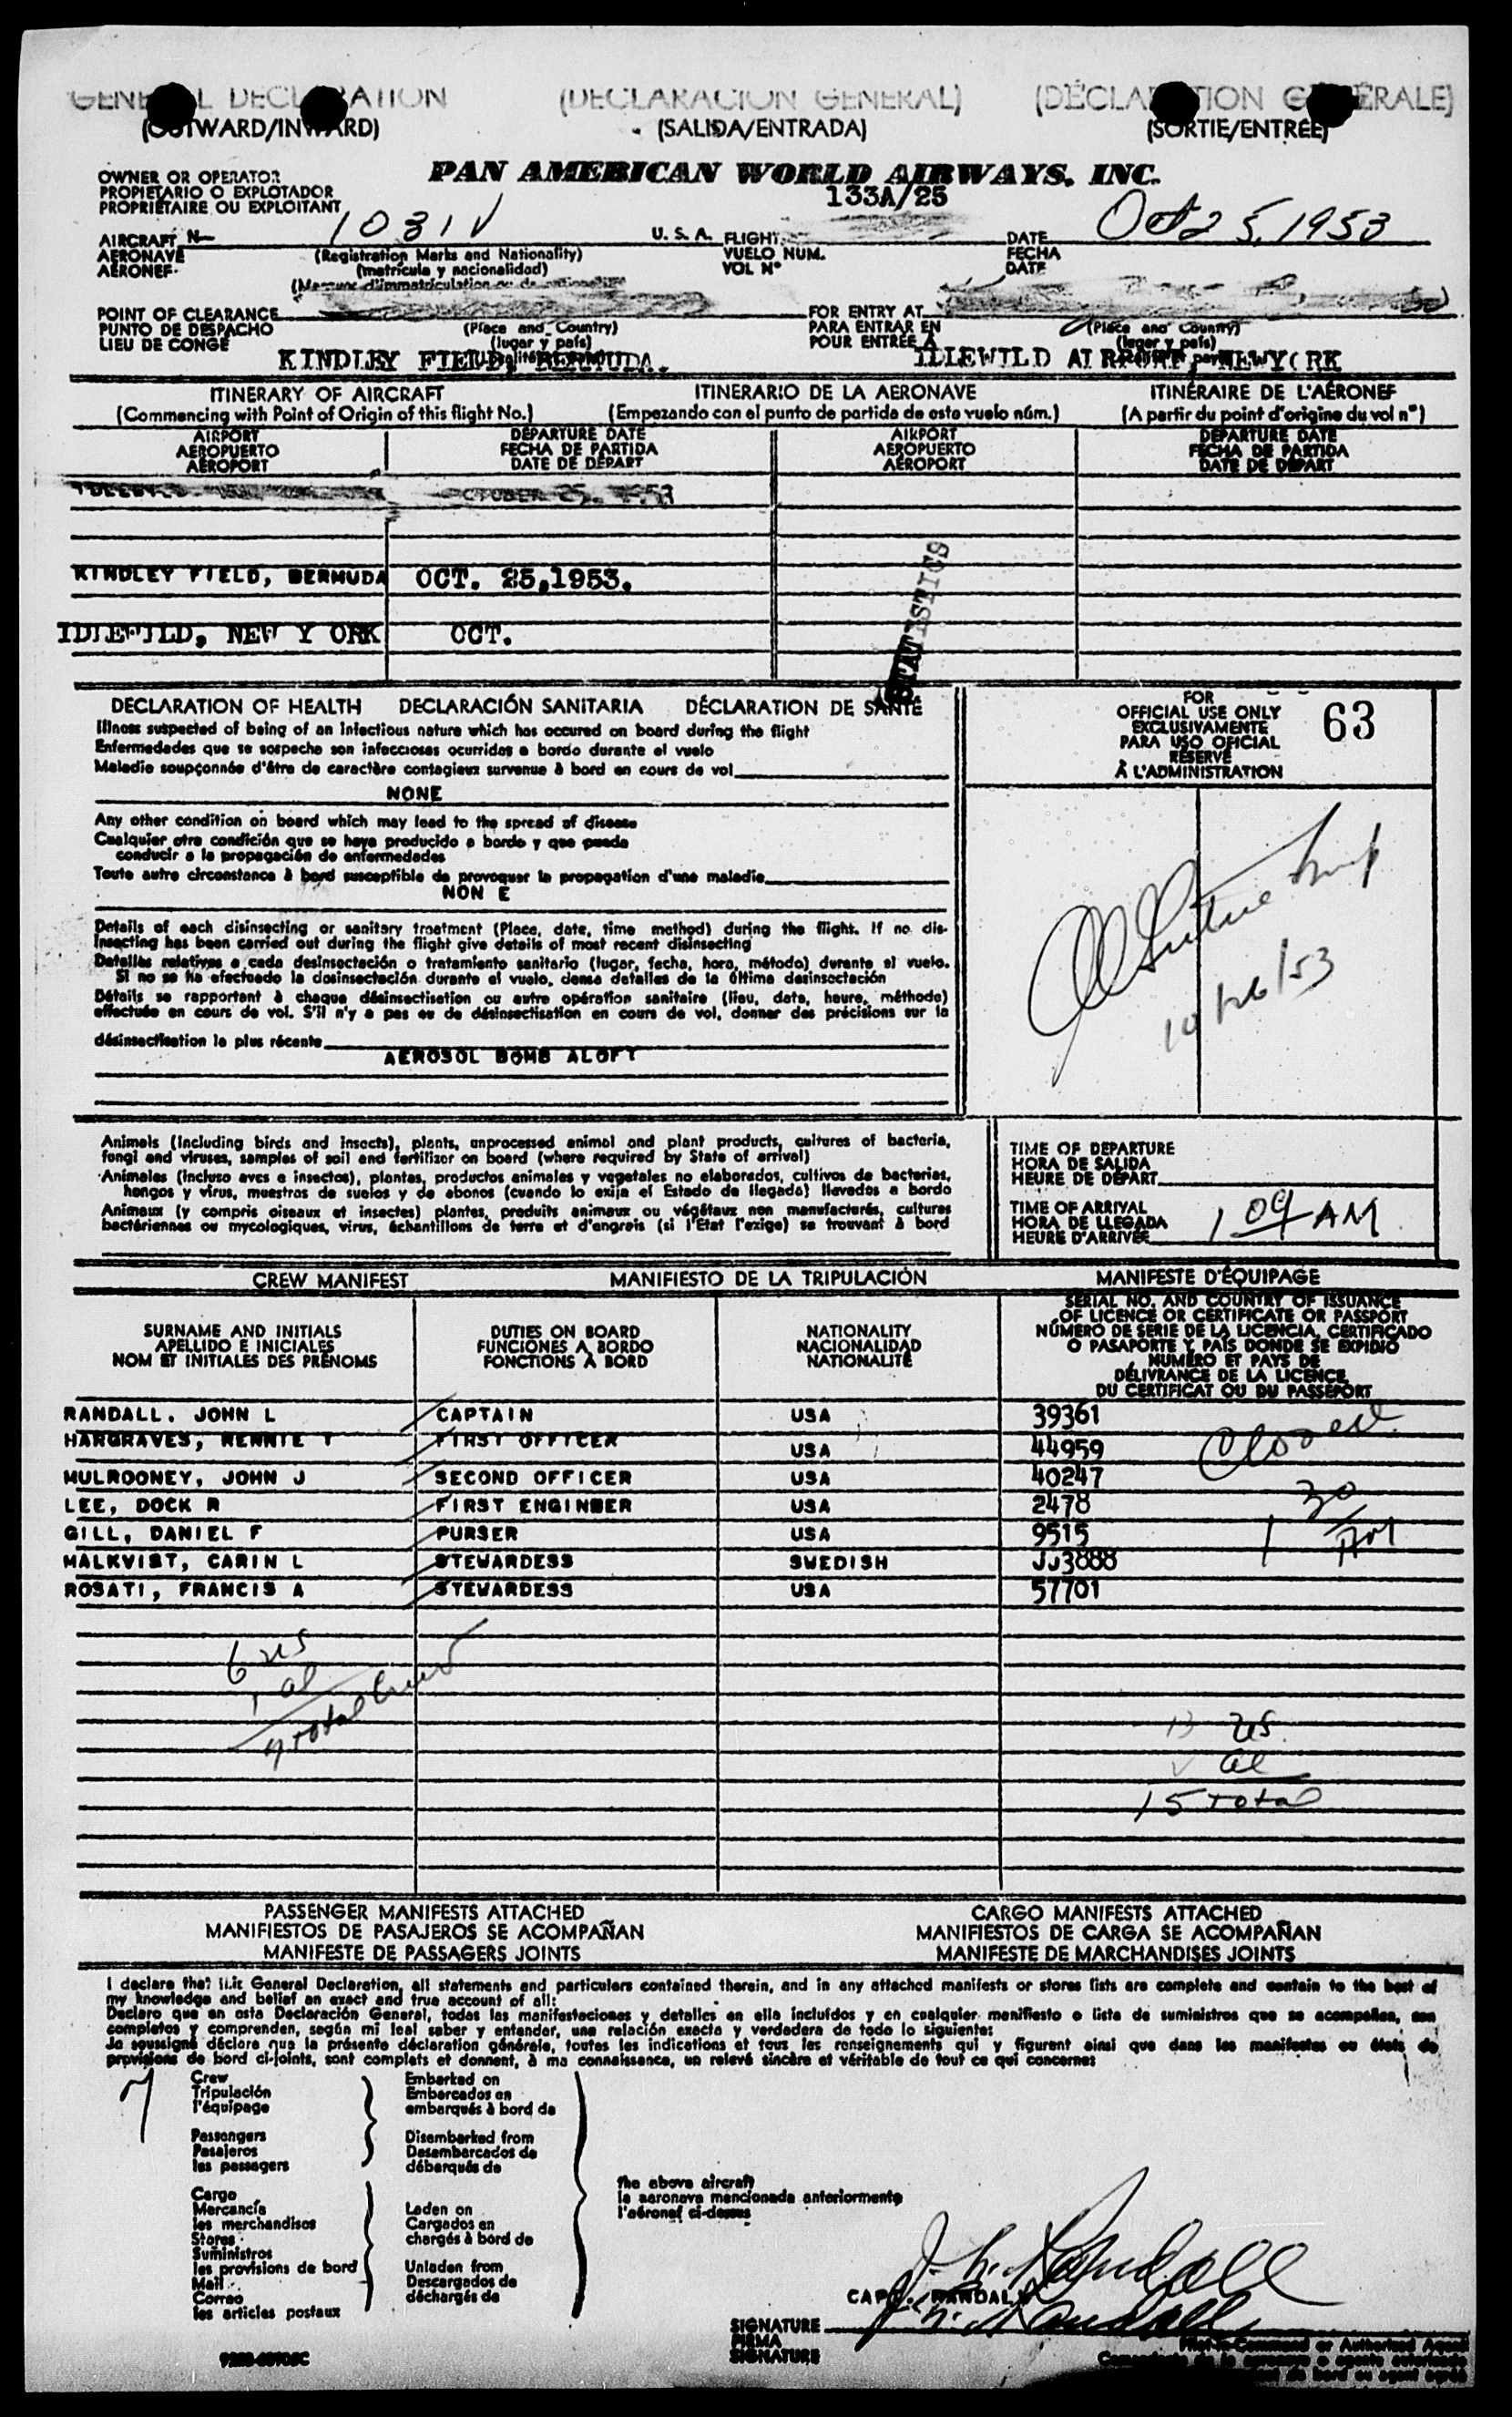 GENERAL DECLARATION (DECLARACION GENERAL) (DÉCLARATION GÉNÉRALE)
(OUTWARD/INWARD) (SALIDA/ENTRADA) (SORTIE/ENTRÉE)
OWNER OR OPERATOR
PROPIETARIO O EXPLOTADOR
PROPRIÉTAIRE OU EXPLOITANT
PAN AMERICAN WORLD AIRWAYS, INC.
133A/25
AIRCRAFT N- 1031V U. S. A. FLIGHT DATE Oct 25, 1953
AERONAVE (Registration Marks and Nationality) VUELO NUM. FECHA
AÉRONEF (matrícula y nacionalidad) VOL Nº DATE
(Marques d'immatriculation et de nationalité)
POINT OF CLEARANCE FOR ENTRY AT
PUNTO DE DESPACHO (Place and Country) PARA ENTRAR EN (Place and Country)
LIEU DE CONGÉ (lugar y país) POUR ENTRÉE À (lugar y país)
KINDLEY FIELD, BERMUDA. IDLEWILD AIRPORT, NEWY( RK
ITINERARY OF AIRCRAFT ITINERARIO DE LA AERONAVE ITINÉRAIRE DE L'AÉRONEF
(Commencing with Point of Origin of this flight No.) (Empezando con el punto de partida de este vuelo núm.) (A partir du point d'origine du vol nº)
AIRPORT DEPARTURE DATE AIRPORT DEPARTURE DATE
AEROPUERTO FECHA DE PARTIDA AEROPUERTO FECHA DE PARTIDA
AÉROPORT DATE DE DÉPART AÉROPORT DATE DE DÉPART
OCTOBER 25, 1953
KINDLEY FIELD, BERMUDA OCT. 25,1953.
IDLEWILD, NEW Y ORK OCT.
STATISTICS
DECLARATION OF HEALTH DECLARACIÓN SANITARIA DÉCLARATION DE SANTÉ
Illness suspected of being of an infectious nature which has occured on board during the flight
Enfermedades que se sospecha son infecciosas ocurridas a bordo durante el vuelo
Maladie soupçonnée d'être de caractère contagieux survenue à bord en cours de vol
NONE
Any other condition on board which may lead to the spread of disease
Cualquier otra condición que se haya producido a bordo y que pueda
conducir a la propagación de enfermedades
Toute autre circonstance à bord susceptible de provoquer la propagation d'une maladie
NON E
Details of each disinsecting or sanitary treatment (Place, date, time method) during the flight. If no dis-
insecting has been carried out during the flight give details of most recent disinsecting
Detalles relativos a cada desinsectación o tratamiento sanitario (lugar, fecha, hora, método) durante el vuelo.
Si no se ha efectuado la desinsectación durante el vuelo, dense detalles de la última desinsectación
Détails se rapportant à chaque désinsectisation ou autre opération sanitaire (lieu, date, heure, méthode)
effectuée en cours de vol. S'il n'y a pas eu de désinsectisation en cours de vol, donner des précisions sur la
désinsectisation la plus récente
AEROSOL BOMB ALOFT
FOR
OFFICIAL USE ONLY
EXCLUSIVAMENTE
PARA USO OFICIAL
RÉSERVÉ
À L'ADMINISTRATION
63
10/26/53
Animals (Including birds and insects), plants, unprocessed animal and plant products, cultures of bacteria,
fungi and viruses, samples of soil and fertilizer on board (where required by State of arrival)
Animales (incluso aves e insectos), plantas, productos animales y vegetales no elaborados, cultivos de bacterias,
hongos y virus, muestras de suelos y de abonos (cuando lo exija el Estado de llegada) llevados a bordo
Animaux (y compris oiseaux et insectes) plantes, produits animaux ou végétaux non manufacturés, cultures
bactériennes ou mycologiques, virus, échantillons de terre et d'engrais (si l'État l'exige) se trouvant à bord
TIME OF DEPARTURE
HORA DE SALIDA
HEURE DE DÉPART
TIME OF ARRIVAL
HORA DE LLEGADA
HEURE D'ARRIVÉE 1 09 AM
CREW MANIFEST MANIFIESTO DE LA TRIPULACIÓN MANIFESTE D'ÉQUIPAGE
SURNAME AND INITIALS
APELLIDO E INICIALES
NOM ET INITIALES DES PRÉNOMS
DUTIES ON BOARD
FUNCIONES A BORDO
FONCTIONS À BORD
NATIONALITY
NACIONALIDAD
NATIONALITÉ
SERIAL NO. AND COUNTRY OF ISSUANCE
OF LICENCE OR CERTIFICATE OR PASSPORT
NÚMERO DE SERIE DE LA LICENCIA, CERTIFICADO
O PASAPORTE Y PAÍS DONDE SE EXPIDIÓ
NUMÉRO ET PAYS DE
DÉLIVRANCE DE LA LICENCE
DU CERTIFICAT OU DU PASSEPORT
RANDALL. JOHN L CAPTAIN USA 39361
HARGRAVES, RENNIE T FIRST OFFICER USA 44959
Closed
MULROONEY, JOHN J SECOND OFFICER USA 40247
LEE, DOCK R FIRST ENGINEER USA 2478
GILL, DANIEL F PURSER USA 9515
1 30 AM
MALKVIST, CARIN L STEWARDESS SWEDISH JJ3888
ROSATI, FRANCIS A STEWARDESS USA 57701
6 us
1 al
7 total crew
13 us
al
15 total
PASSENGER MANIFESTS ATTACHED CARGO MANIFESTS ATTACHED
MANIFIESTOS DE PASAJEROS SE ACOMPAÑAN MANIFIESTOS DE CARGA SE ACOMPAÑAN
MANIFESTE DE PASSAGERS JOINTS MANIFESTE DE MARCHANDISES JOINTS
I declare that this General Declaration, all statements and particulars contained therein, and in any attached manifests or stores lists are complete and contain to the best of
my knowledge and belief an exact and true account of all:
Declaro que en esta Declaración General, todas las manifestaciones y detalles en ella incluídos y en cualquier manifiesto o lista de suministros que se acompañen, son
completos y comprenden, según mi leal saber y entender, una relación exacta y verdadera de todo lo siguiente:
Je soussigné déclare que la présente déclaration générale, toutes les indications et tous les renseignements qui y figurent ainsi que dans les manifestes ou états de
provisions de bord ci-joints, sont complets et donnent, à ma connaissance, un relevé sincère et véritable de tout ce qui concerne:
7
Crew Embarked on
Tripulación Embarcados en
l'équipage embarqués à bord de
Passengers Disembarked from
Pasajeros Desembarcados de
les passagers débarqués de
The above aircraft
la aeronave mencionada anteriormente
l'aéronef ci-dessus
Cargo
Mercancía Laden on
les merchandises Cargados en
Stores chargés à bord de
Suministros
les provisions de bord Unladen from
Mail Descargados de
Correo déchargés de
les articles postaux
J. L. Randall
CAPT. RANDALL
J. L. Randall
SIGNATURE
FIRMA
SIGNATURE
Pilot-in-Command or Authorized Agent